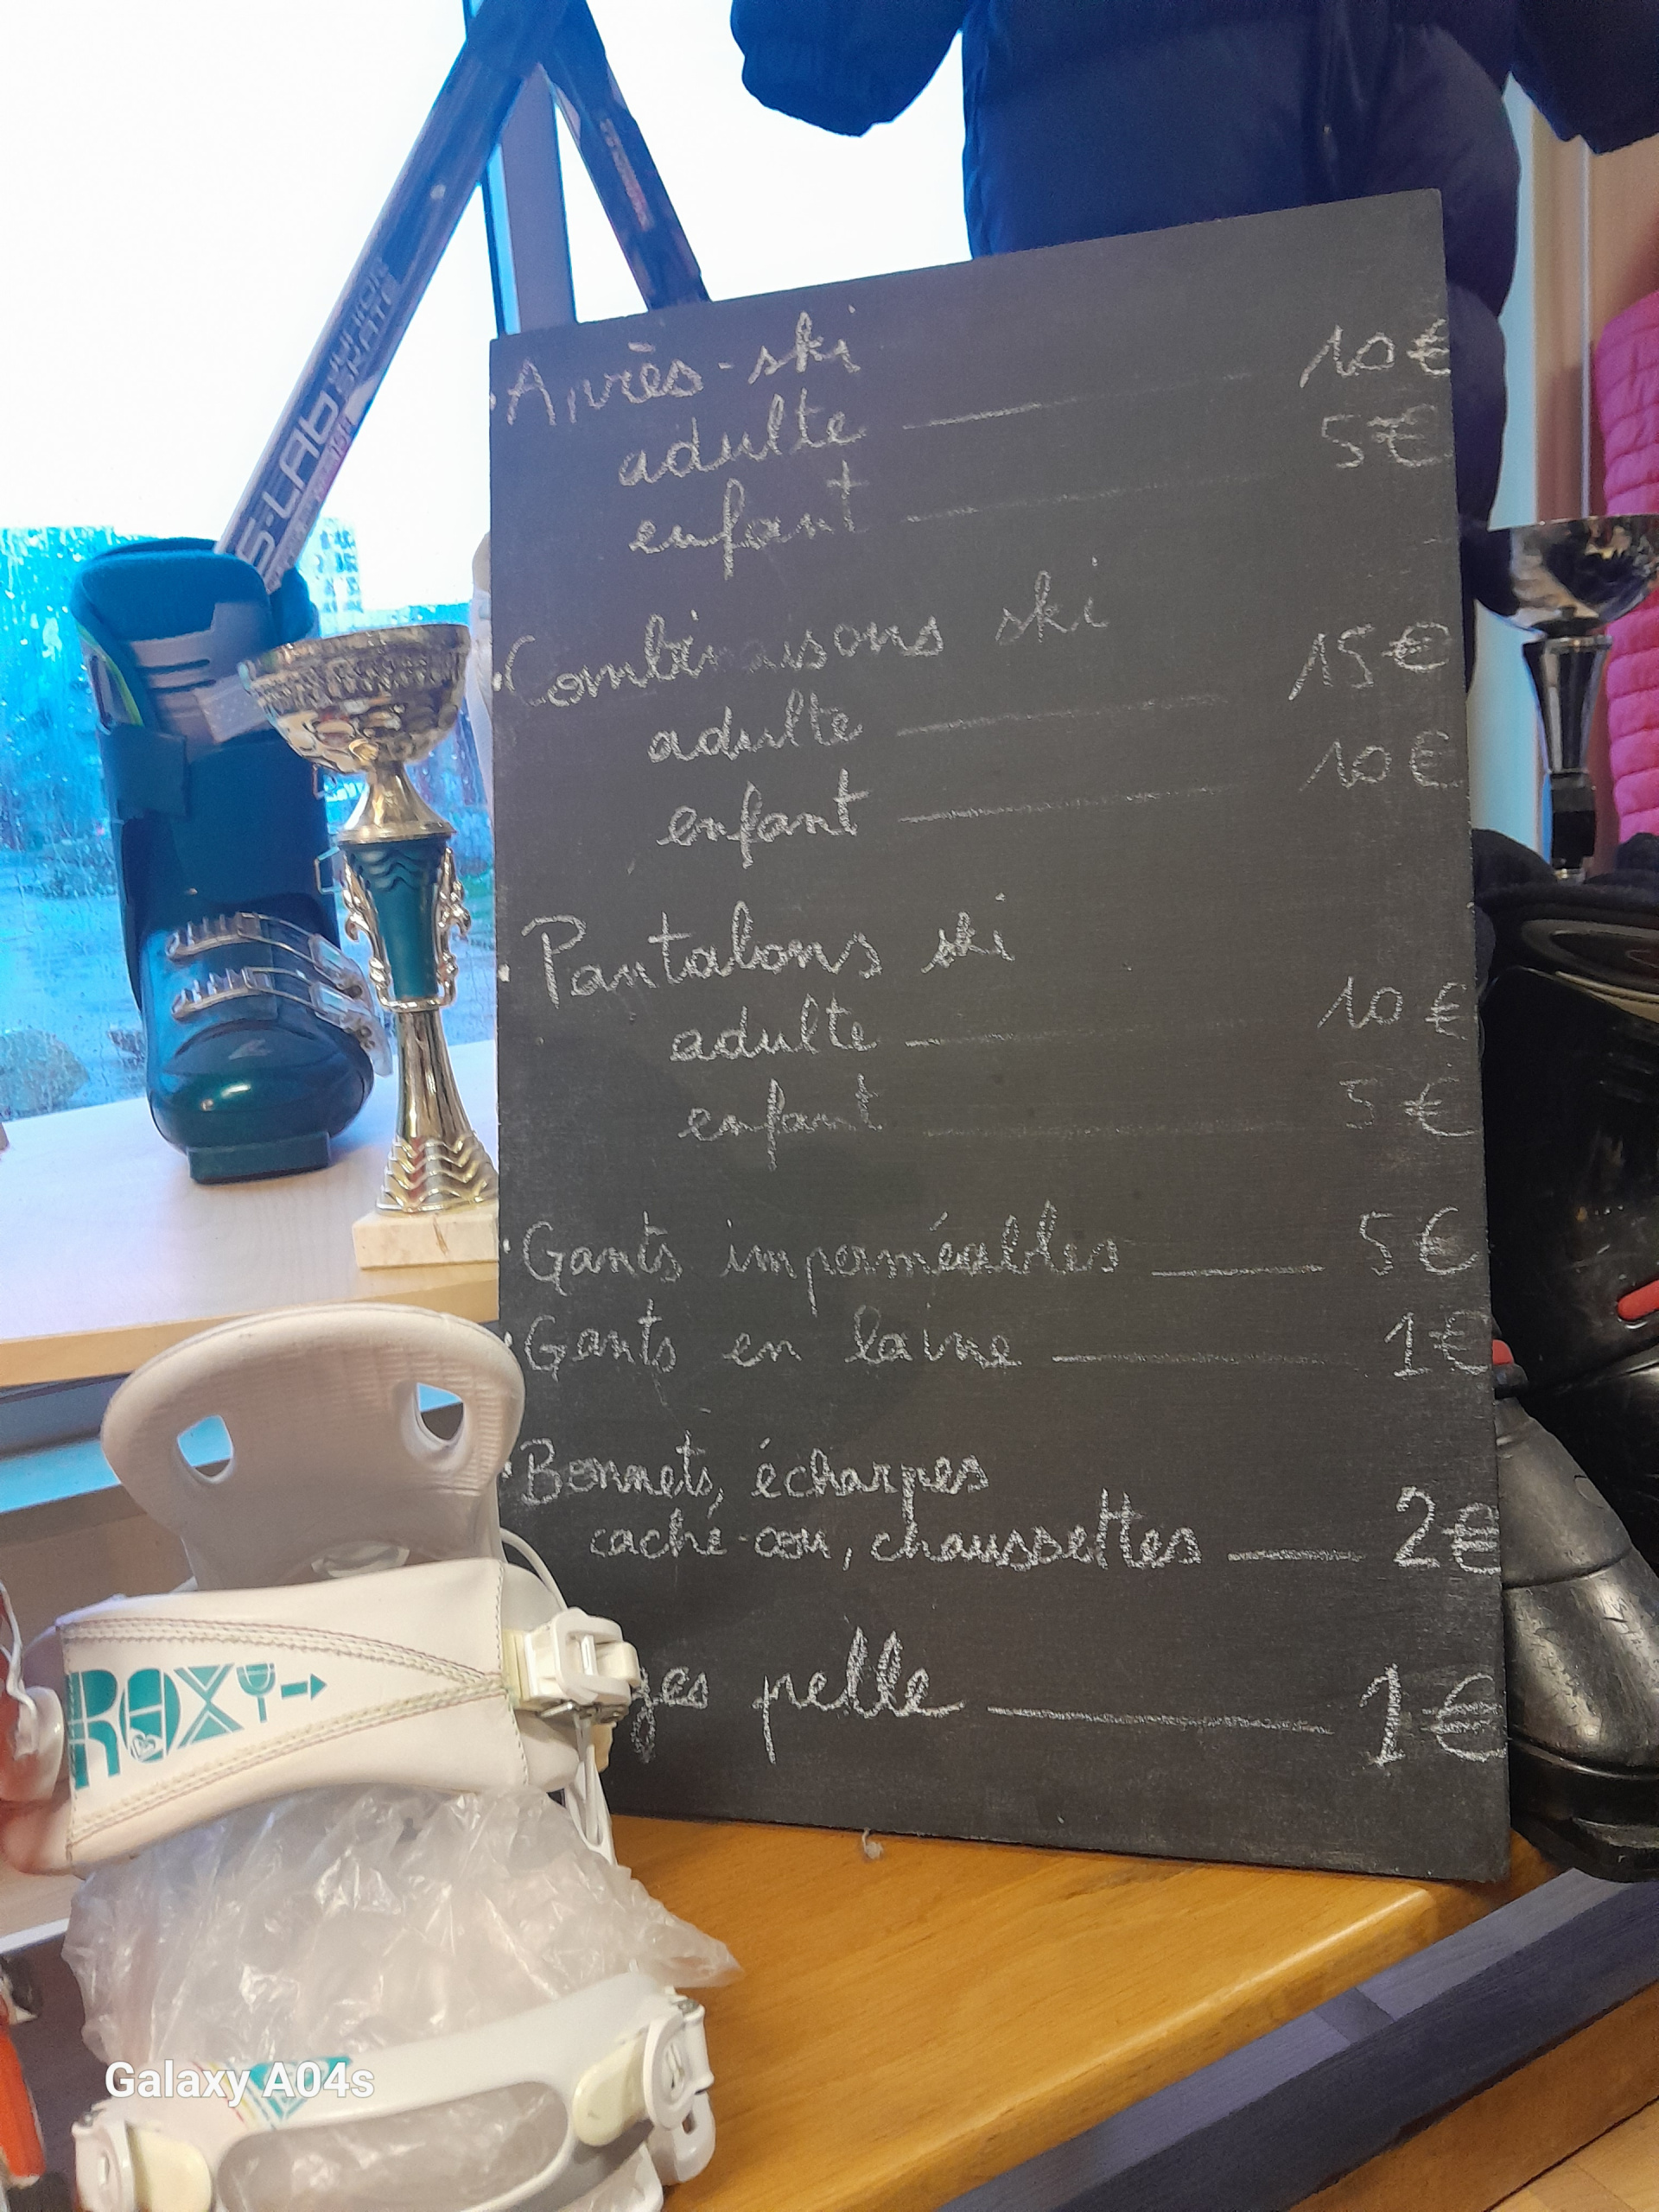 S-LAB
JUNIOR
SKATE
Après-ski 10€
adulte 5€
enfant
Combinaisons ski
adulte 15€
enfant 10€
Pantalons ski
adulte 10€
enfant 5€
Gants imperméables 5€
Gants en laine 1€
Bonnets, écharpes
caché-cou, chaussettes 2€
ges pelle 1€
ROXY
Galaxy A04s